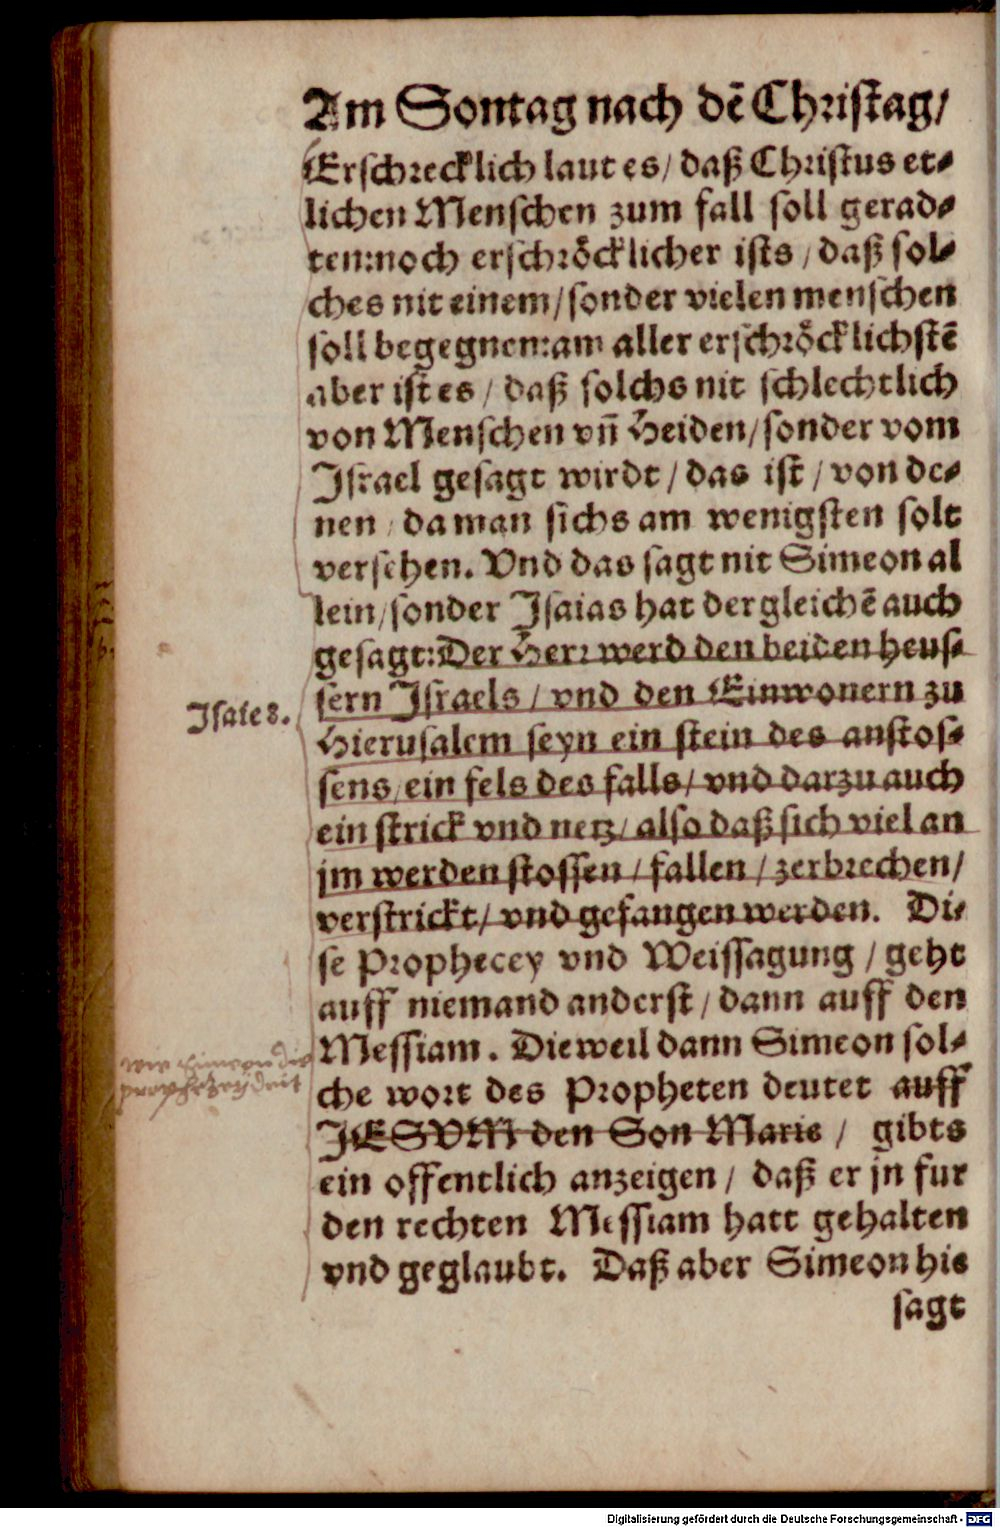 Am Sontag nach dē Christag/
Erschrecklich laut es/ daß Christus et⸗
lichen Menschen zum fall soll gerad⸗
ten: noch erschröcklicher ists/ daß sol⸗
ches nit einem/ sonder vielen menschen
soll begegnen: am aller erschröcklichstē
aber ist es/ daß solchs nit schlechtlich
von Menschen vñ Heiden/ sonder vom
Israel gesagt wirdt/ das ist/ von de⸗
nen/ da man sichs am wenigsten solt
versehen. Vnd das sagt nit Simeon al
lein/ sonder Isaias hat dergleichē auch
gesagt: Der Herr werd den beiden heus⸗
sern Israels/ vnd den Einwonern zu
Isaie 8.
Hierusalem seyn ein stein des anstos⸗
sens/ ein fels des falls/ vnd darzu auch
ein strick vnd netz/ also daß sich viel an
jm werden stossen/ fallen/ zerbrechen/
verstrickt/ vnd gefangen werden. Di⸗
se Prophecey vnd Weissagung/ geht
auff niemand anderst/ dann auff den
Messiam. Dieweil dann Simeon sol⸗
wie Simeon die
prophezeÿ deut
che wort des Propheten deutet auff
JESVM den Son Marie/ gibts
ein offentlich anzeigen/ daß er jn fur
den rechten Messiam hatt gehalten
vnd geglaubt. Daß aber Simeon hie
sagt
Digitalisierung gefördert durch die Deutsche Forschungsgemeinschaft - DFG